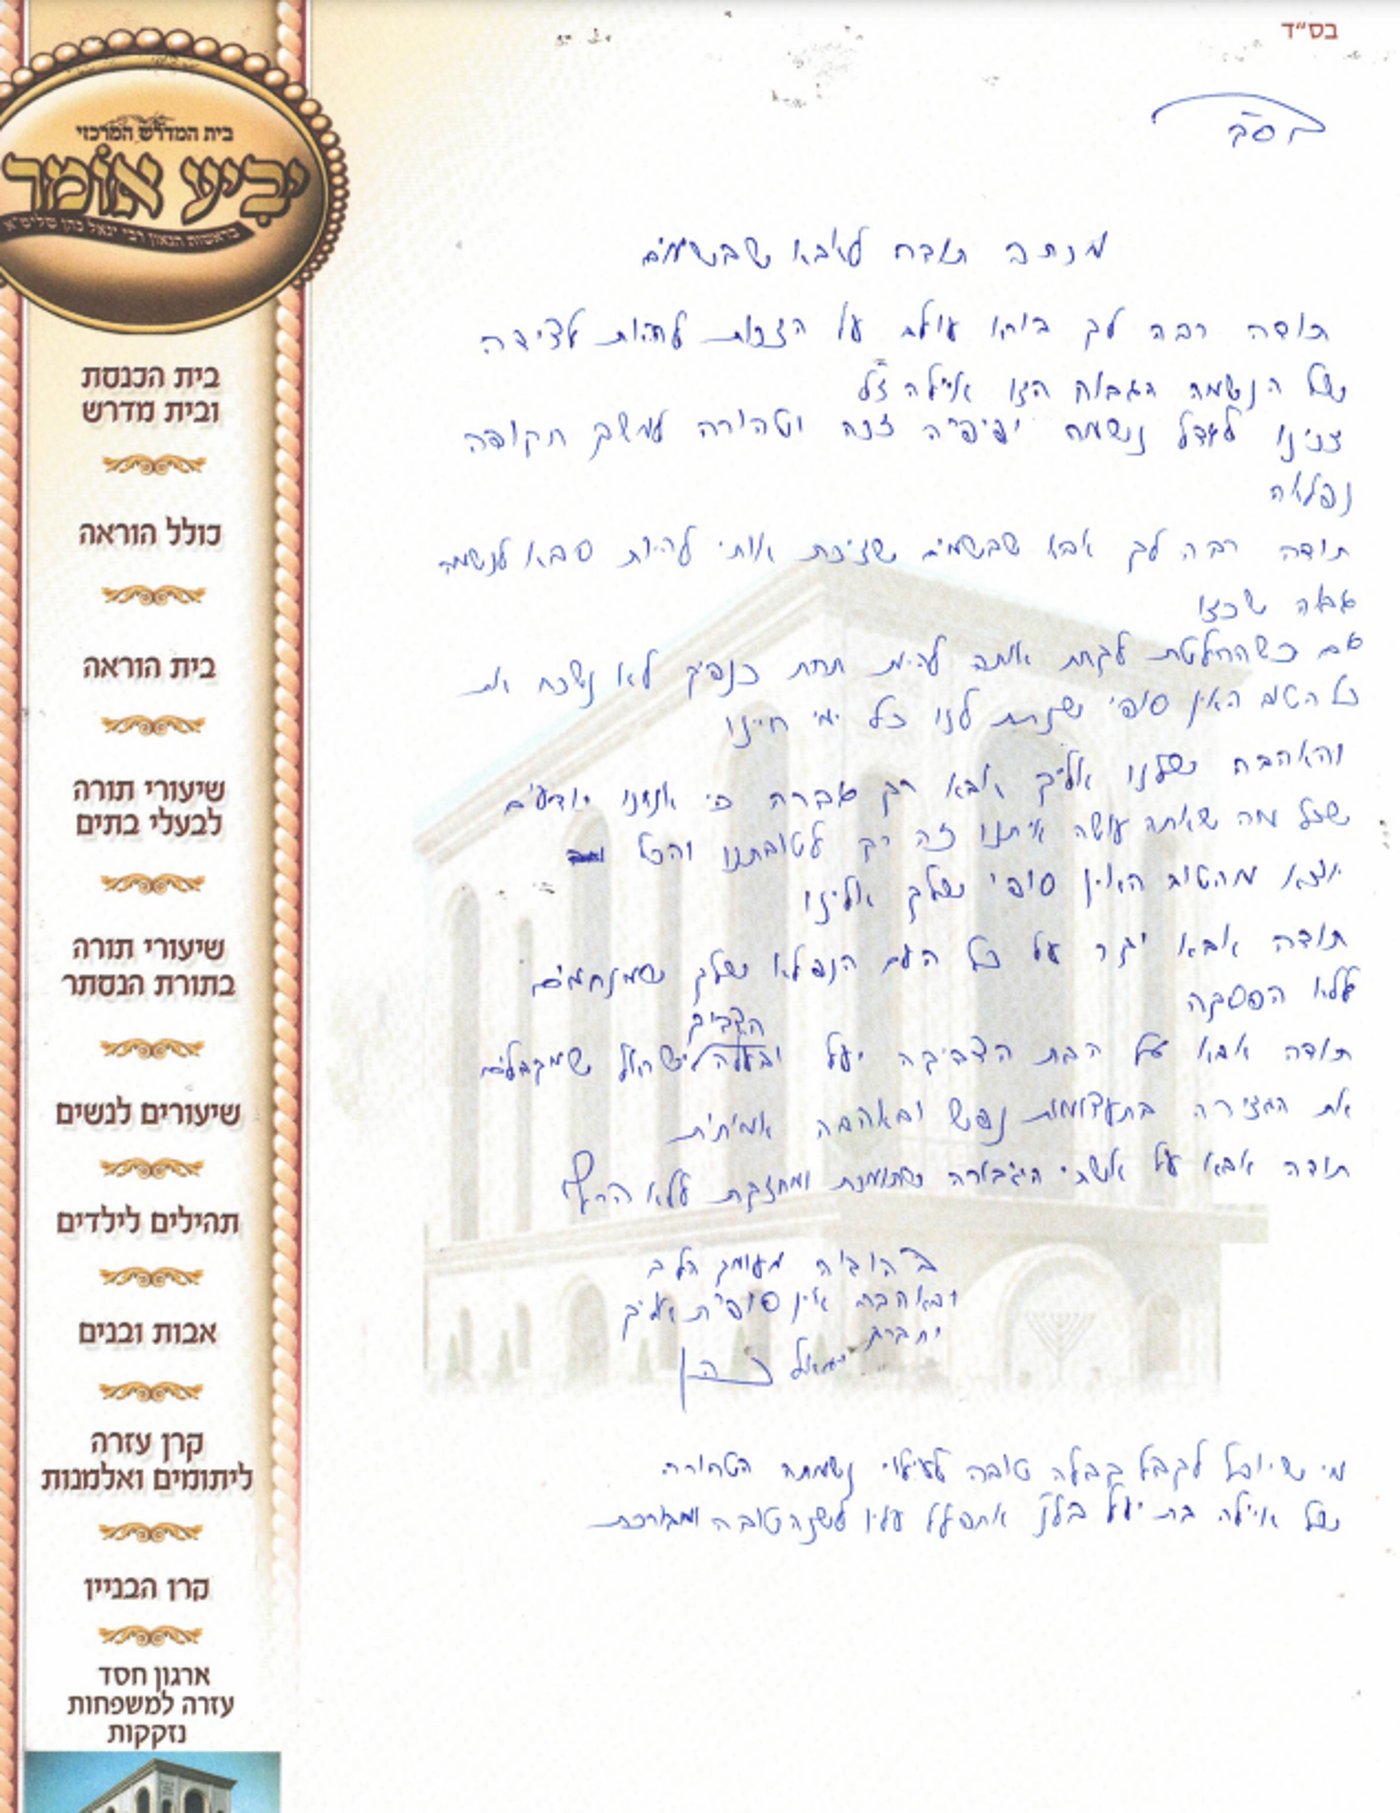 בס״ד
בית המדרש המרכזי
יביע אומר
בראשות הגאון רבי יגאל כהן שליט״א
בית הכנסת
ובית מדרש
כולל הוראה
בית הוראה
שיעורי תורה
לבעלי בתים
שיעורי תורה
בתורת הנסתר
שיעורים לנשים
תהילים לילדים
אבות ובנים
קרן עזרה
ליתומים ואלמנות
קרן הבניין
ארגון חסד
עזרה למשפחות
נזקקות
תודה לאבא שבשמים
תודה רבה לך בורא עולם על הזכות להיות
של הנשמה הגבוה הזו איילה ז״ל
זכינו לגדל נשמה יפיפיה זכה וטהורה למשך תקופה
נפלאה
תודה רבה לך אבא שבשמים שזיכת אותי להיות סבא לנשמה
גבוהה שכזו
גם כשהחלטת לקחת אותה להיות תחת כנפיך לא נשכח את
כל הטוב האין סופי שנתת לנו כל ימי חיינו
והאהבה שלנו אליך אבא רק גברה כי אנחנו יודעים
שכל מה שאתה עושה איתנו זה רק לטובתנו והכל
יוצא מהטוב האין סופי שלך אלינו
תודה אבא יקר על כל העם הנפלא שלך שמנחמים
ללא הפסקה
תודה אבא על הבת הצדיקה יעל ובעלה הצדיק ישראל שמקבלים
את הגזירה בתעצומות נפש ובאהבה אמיתית
תודה אבא על אשתי הגיבורה שתומכת ומחזקת ללא הרף
מעומק הלב
ובאהבה אין סופית אליך
יגאל כהן
מי שיוכל לקבל קבלה טובה לעילוי נשמתה הטהורה
של איילה בת יעל אתפלל עליו לשנה טובה ומבורכת